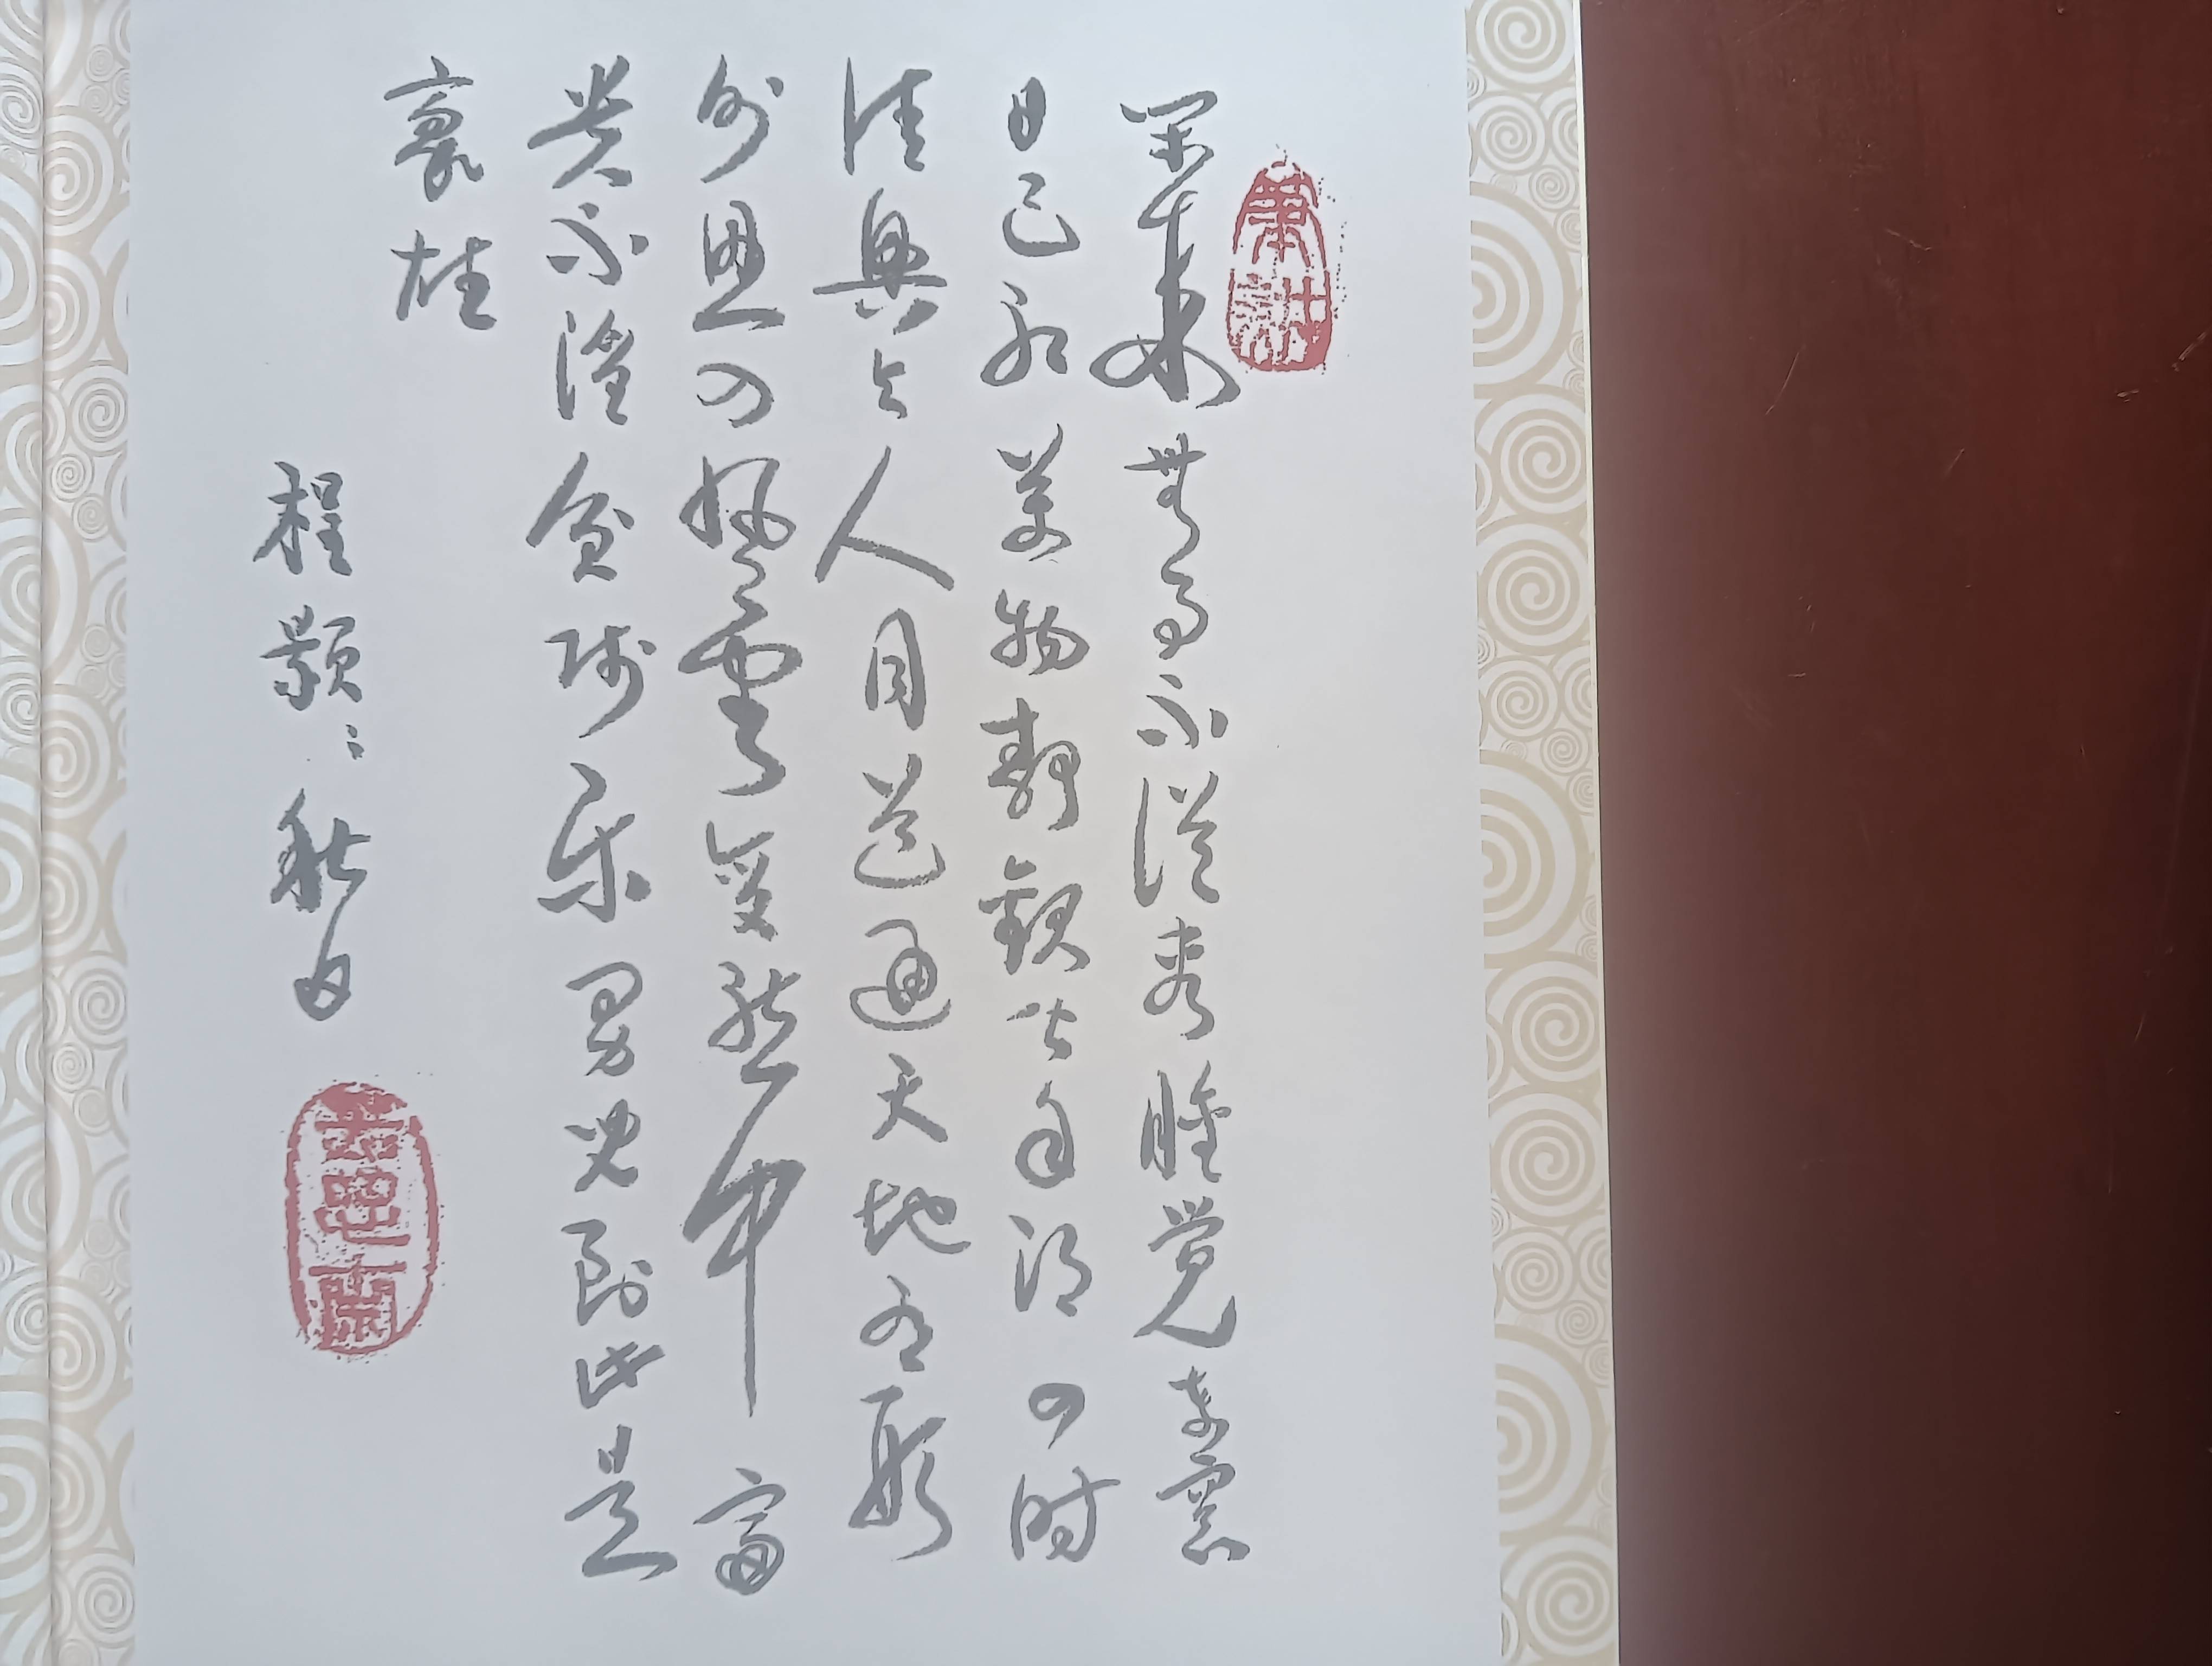 闲来無事不從容睡觉東窗
日已红萬物静觀皆自得四时
佳興与人同道通天地有形
外思入風雲變態中富
贵不淫贫贱乐男兒到此是
豪雄
程颢：秋日